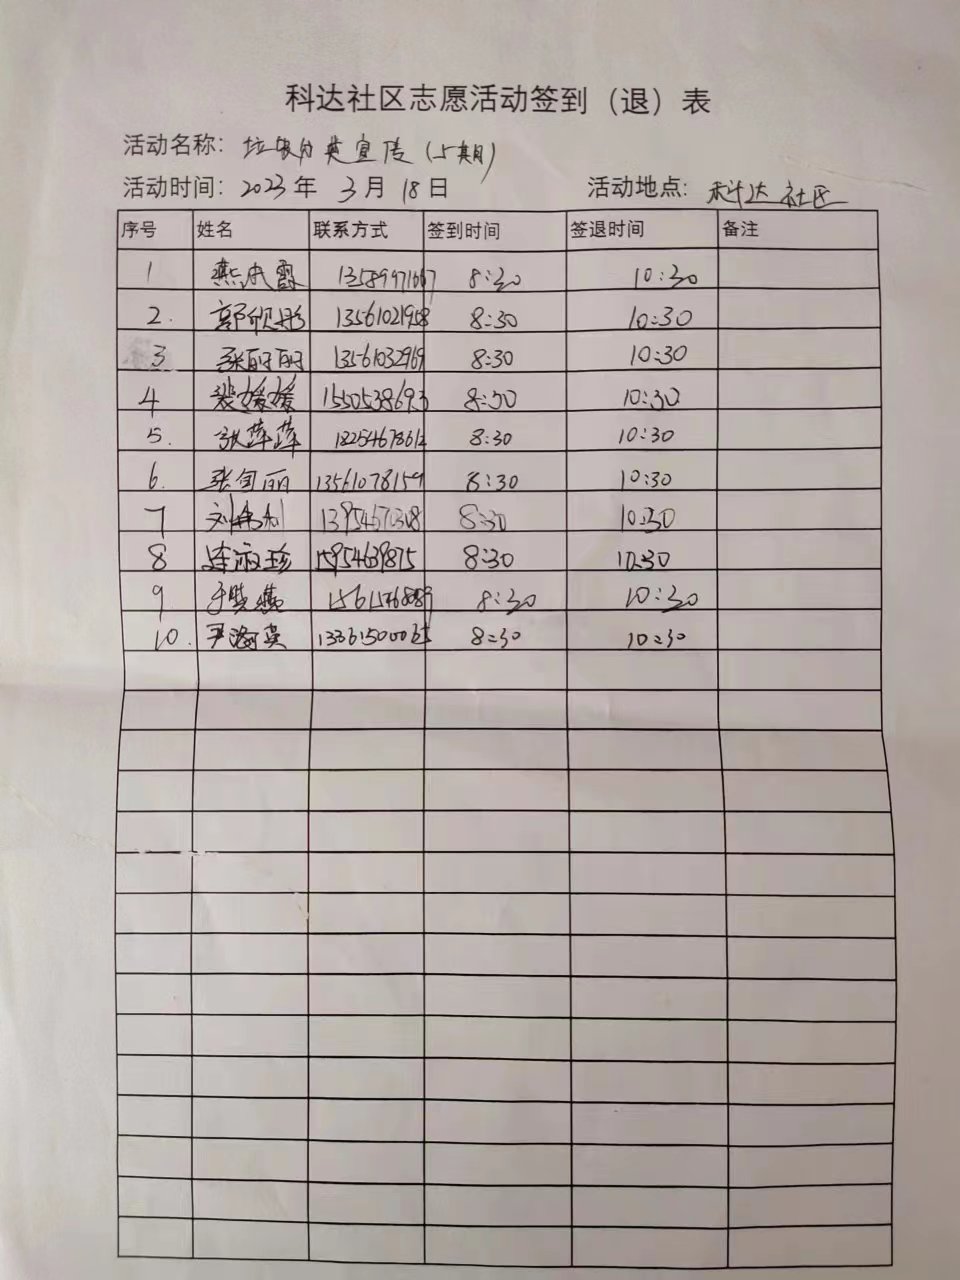 科达社区志愿活动签到（退）表
活动名称：垃圾分类宣传（5期）
活动时间：2023年 3月 18日 活动地点：科达社区
序号 姓名 联系方式 签到时间 签退时间 备注
1 燕 霞 8:30 10:30
2. 郭欣彤 13561021958 8:30 10:30
3 张丽丽 13561032969 8:30 10:30
4 裴媛媛 1550538693 8:30 10:30
5. 张萍萍 8:30 10:30
6. 张 丽 13561078159 8:30 10:30
7 刘 利 8:30 10:30
8 淑珍 15954639875 8:30 10:30
9. 于 燕 8:30 10:30
10. 尹海英 13361500065 8:30 10:30